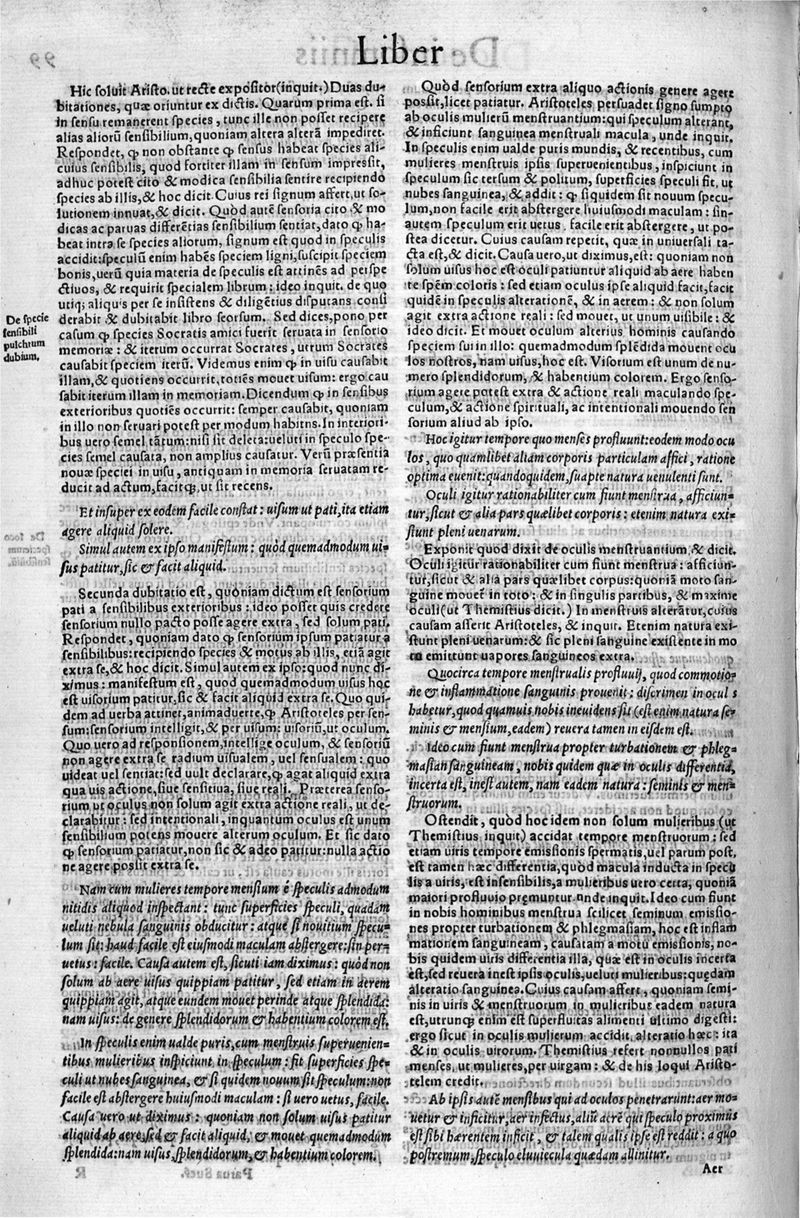 Liber
Hic soluit Aristo. ut recte expositor (inquit.) Duas du-
bitationes, quæ oriuntur ex dictis. Quarum prima est. si
in sensu remanerent species, tunc ille non posset recipere
alias aliorũ sensibilium, quoniam altera alterã impediret.
Respondet, ꝙ non obstante ꝙ sensus habeat species ali-
cuius sensibilis, quod fortiter illam in sensum impressit,
adhuc potest cito & modica sensibilia sentire recipiendo
species ab illis, & hoc dicit. Cuius rei signum affert, ut so-
lutionem innuat, & dicit. Quòd autẽ sensoria cito & mo
dicas ac paruas differẽtias sensibilium sentiat, dato ꝙ ha-
beat intra se species aliorum, signum est quod in speculis
accidit: speculũ enim habẽs speciem ligni, suscipit speciem
bonis, uerũ quia materia de speculis est attinẽs ad perspe
ctiuos, & requirit specialem librum: ideo inquit. de quo
utiq; aliquis per se insistens & diligẽtius disputans consi
derabit & dubitabit libro seorsum. Sed dices, pono per
casum ꝙ species Socratis amici fuerit seruata in sensorio
memoriæ: & iterum occurrat Socrates, utrum Socrates
causabit speciem iterũ. Videmus enim ꝙ in uisu causabit
illam, & quotiens occurrit, totiẽs mouet uisum: ergo cau
sabit iterum illam in memoriam. Dicendum ꝙ in sensibus
exterioribus quotiẽs occurrit: semper causabit, quoniam
in illo non seruari potest per modum habitus. In interiori-
bus uero semel tãtum: nisi sit deleta: ueluti in speculo spe-
cies semel causata, non amplius causatur. Verũ præsentia
nouæ speciei in uisu, antiquam in memoria seruatam re-
ducit ad actum, facitꝙ, ut sit recens.
De specie
sensibili
pulchrum
dubium.
Et insuper ex eodem facile constat: uisum ut pati, ita etiam
agere aliquid solere.
Simul autem ex ipso manifestum: quòd quemadmodum ui-
sus patitur, sic & facit aliquid.
Secunda dubitatio est, quoniam dictum est sensorium
pati a sensibilibus exterioribus: ideo posset quis credere
sensorium nullo pacto posse agere extra, sed solum pati.
Respondet, quoniam dato ꝙ sensorium ipsum patiatur a
sensibilibus: recipiendo species & motus ab illis, etiã agit
extra se, & hoc dicit. Simul autem ex ipso: quod nunc di-
ximus: manifestum est, quod quemadmodum uisus hoc
est uisorium patitur, sic & facit aliquid extra se. Quo qui-
dem ad uerba attinet, animaduerte, ꝙ Aristoteles per sen-
sum: sensorium intelligit, & per uisum: uisoriũ, ut oculum.
Quo uero ad responsionem, intellige oculum, & sensoriũ
non agere extra se radium uisualem, uel sensualem: quo
uideat uel sentiat: sed uult declarare, ꝙ agat aliquid extra
qua uis actione, siue sensitiua, siue reali. Præterea senso-
rium ut oculus non solum agit extra actione reali, ut de-
clarabitur: sed intentionali, inquantum oculus est unum
sensibilium potens mouere alterum oculum. Et sic dato
ꝙ sensorium patiatur, non sic & adeo patitur: nulla actio
ne agere possit extra se.
Nam cum mulieres tempore mensium è speculis admodum
nitidis aliquod inspectant: tunc superficies speculi, quadam
ueluti nebula sanguinis obducitur: atque si nouitium specu-
lum sit: haud facile est eiusmodi maculam abstergere: sin per-
uetus: facile. Causa autem est, sicuti iam diximus: quòd non
solum ab aere uisus quippiam patitur, sed etiam in aerem
quippiam agit, atque eundem mouet perinde atque splendida:
nam uisus: de genere splendidorum & habentium colorem est.
In speculis enim ualde puris, cum menstruis superuenien-
tibus mulieribus inspiciunt in speculum: fit superficies spe-
culi ut nubes sanguinea, & si quidem nouum sit speculum: non
facile est abstergere huiusmodi maculam: si uero uetus, facile.
Causa uero ut diximus: quoniam non solum uisus patitur
aliquid ab aere, sed & facit aliquid, & mouet quemadmodum
splendida: nam uisus, splendidorum, & habentium colorem.
Quòd sensorium extra aliquo actionis genere agere
possit, licet patiatur. Aristoteles persuadet signo sumpto
ab oculis mulierũ menstruantium: qui speculum alterant,
& inficiunt sanguinea menstruali macula, unde inquit.
In speculis enim ualde puris mundis, & recentibus, cum
mulieres menstruis ipsis superuenientibus, inspiciunt in
speculum sic tersum & politum, superficies speculi fit, ut
nubes sanguinea, & addit: ꝙ siquidem sit nouum specu-
lum, non facile erit abstergere huiusmodi maculam: sin-
autem speculum erit uetus, facile erit abstergere, ut po-
stea dicetur. Cuius causam repetit, quæ in uniuersali ta-
cta est, & dicit. Causa uero, ut diximus, est: quoniam non
solum uisus hoc est oculi patiuntur aliquid ab aere haben
te spẽm coloris: sed etiam oculus ipse aliquid facit, facit
quidẽ in speculis alterationẽ, & in aerem: & non solum
agit extra actione reali: sed mouet, ut unum uisibile: &
ideo dicit. Et mouet oculum alterius hominis causando
speciem sui in illo: quemadmodum splẽdida mouent ocu
los nostros, nam uisus, hoc est. Visorium est unum de nu-
mero splendidorum, & habentium colorem. Ergo senso-
rium agere potest extra & actione reali maculando spe-
culum, & actione spirituali, ac intentionali mouendo sen
sorium aliud ab ipso.
Hoc igitur tempore quo menses profluunt: eodem modo ocu
los, quo quamlibet aliam corporis particulam affici, ratione
optima euenit: quandoquidem, suapte natura uenulenti sunt.
Oculi igitur rationabiliter cum fiunt menstrua, afficiun-
tur, sicut & alia pars quælibet corporis: etenim natura exi-
stunt pleni uenarum.
Exponit quod dixit de oculis menstruantium, & dicit.
Oculi igitur rationabiliter cum fiunt menstrua: afficiun-
tur, sicut & alia pars quælibet corpus: quoniã moto san-
guine mouent̃ in toto: & in singulis partibus, & maxime
oculi (ut Themistius dicit.) In menstruis alterãtur, cuius
causam asserit Aristoteles, & inquit. Etenim natura exi-
stunt pleni uenarum: & sic pleni sanguine existente in mo
to emittunt uapores sanguineos extra.
Quocirca tempore menstrualis profluuij, quod commotio-
ne & inflammatione sanguinis prouenit: discrimen in ocul s
habetur, quod quamuis nobis ineuidens sit (est enim natura se-
minis & mensium, eadem) reuera tamen in eisdem est.
Ideo cum fiunt menstrua propter turbationem & phleg-
masian sanguineam, nobis quidem quæ in oculis differentia,
incerta est, inest autem, nam eadem natura: seminis & men-
struorum.
Ostendit, quòd hoc idem non solum mulieribus (ut
Themistius inquit) accidat tempore menstruorum: sed
etiam uiris tempore emissionis spermatis, uel parum post,
est tamen hæc differentia, quòd macula inducta in specu
lis a uiris, est insensibilis, a mulieribus uero certa, quoniã
maiori profluuio premuntur unde inquit. Ideo cum fiunt
in nobis hominibus menstrua scilicet seminum emissio-
nes propter turbationem & phlegmasiam, hoc est inflam
mationem sanguineam, causatam a motu emissionis, no-
bis quidem uiris differentia illa, quæ est in oculis incerta
est, sed reuera inest ipsis oculis, ueluti mulieribus: quędam
alteratio sanguinea. Cuius causam affert, quoniam semi-
nis in uiris & menstruorum in mulieribus eadem natura
est, utrunq; enim est superfluitas alimenti ultimo digesti:
ergo sicut in oculis mulierum accidit, alteratio hæc: ita
& in oculis uirorum. Themistius refert nonnullos pati
menses, ut mulieres, per uirgam: & de his loqui Aristo-
telem credit.
Ab ipsis autẽ mensibus qui ad oculos penetrarunt: aer mo-
uetur & inficitur, aer infectus, aliũ aerẽ qui speculo proximus
est sibi hærentem inficit, & talem qualis ipse est reddit: a quo
postremum, speculo eluuiecula quædam allinitur.
Aer